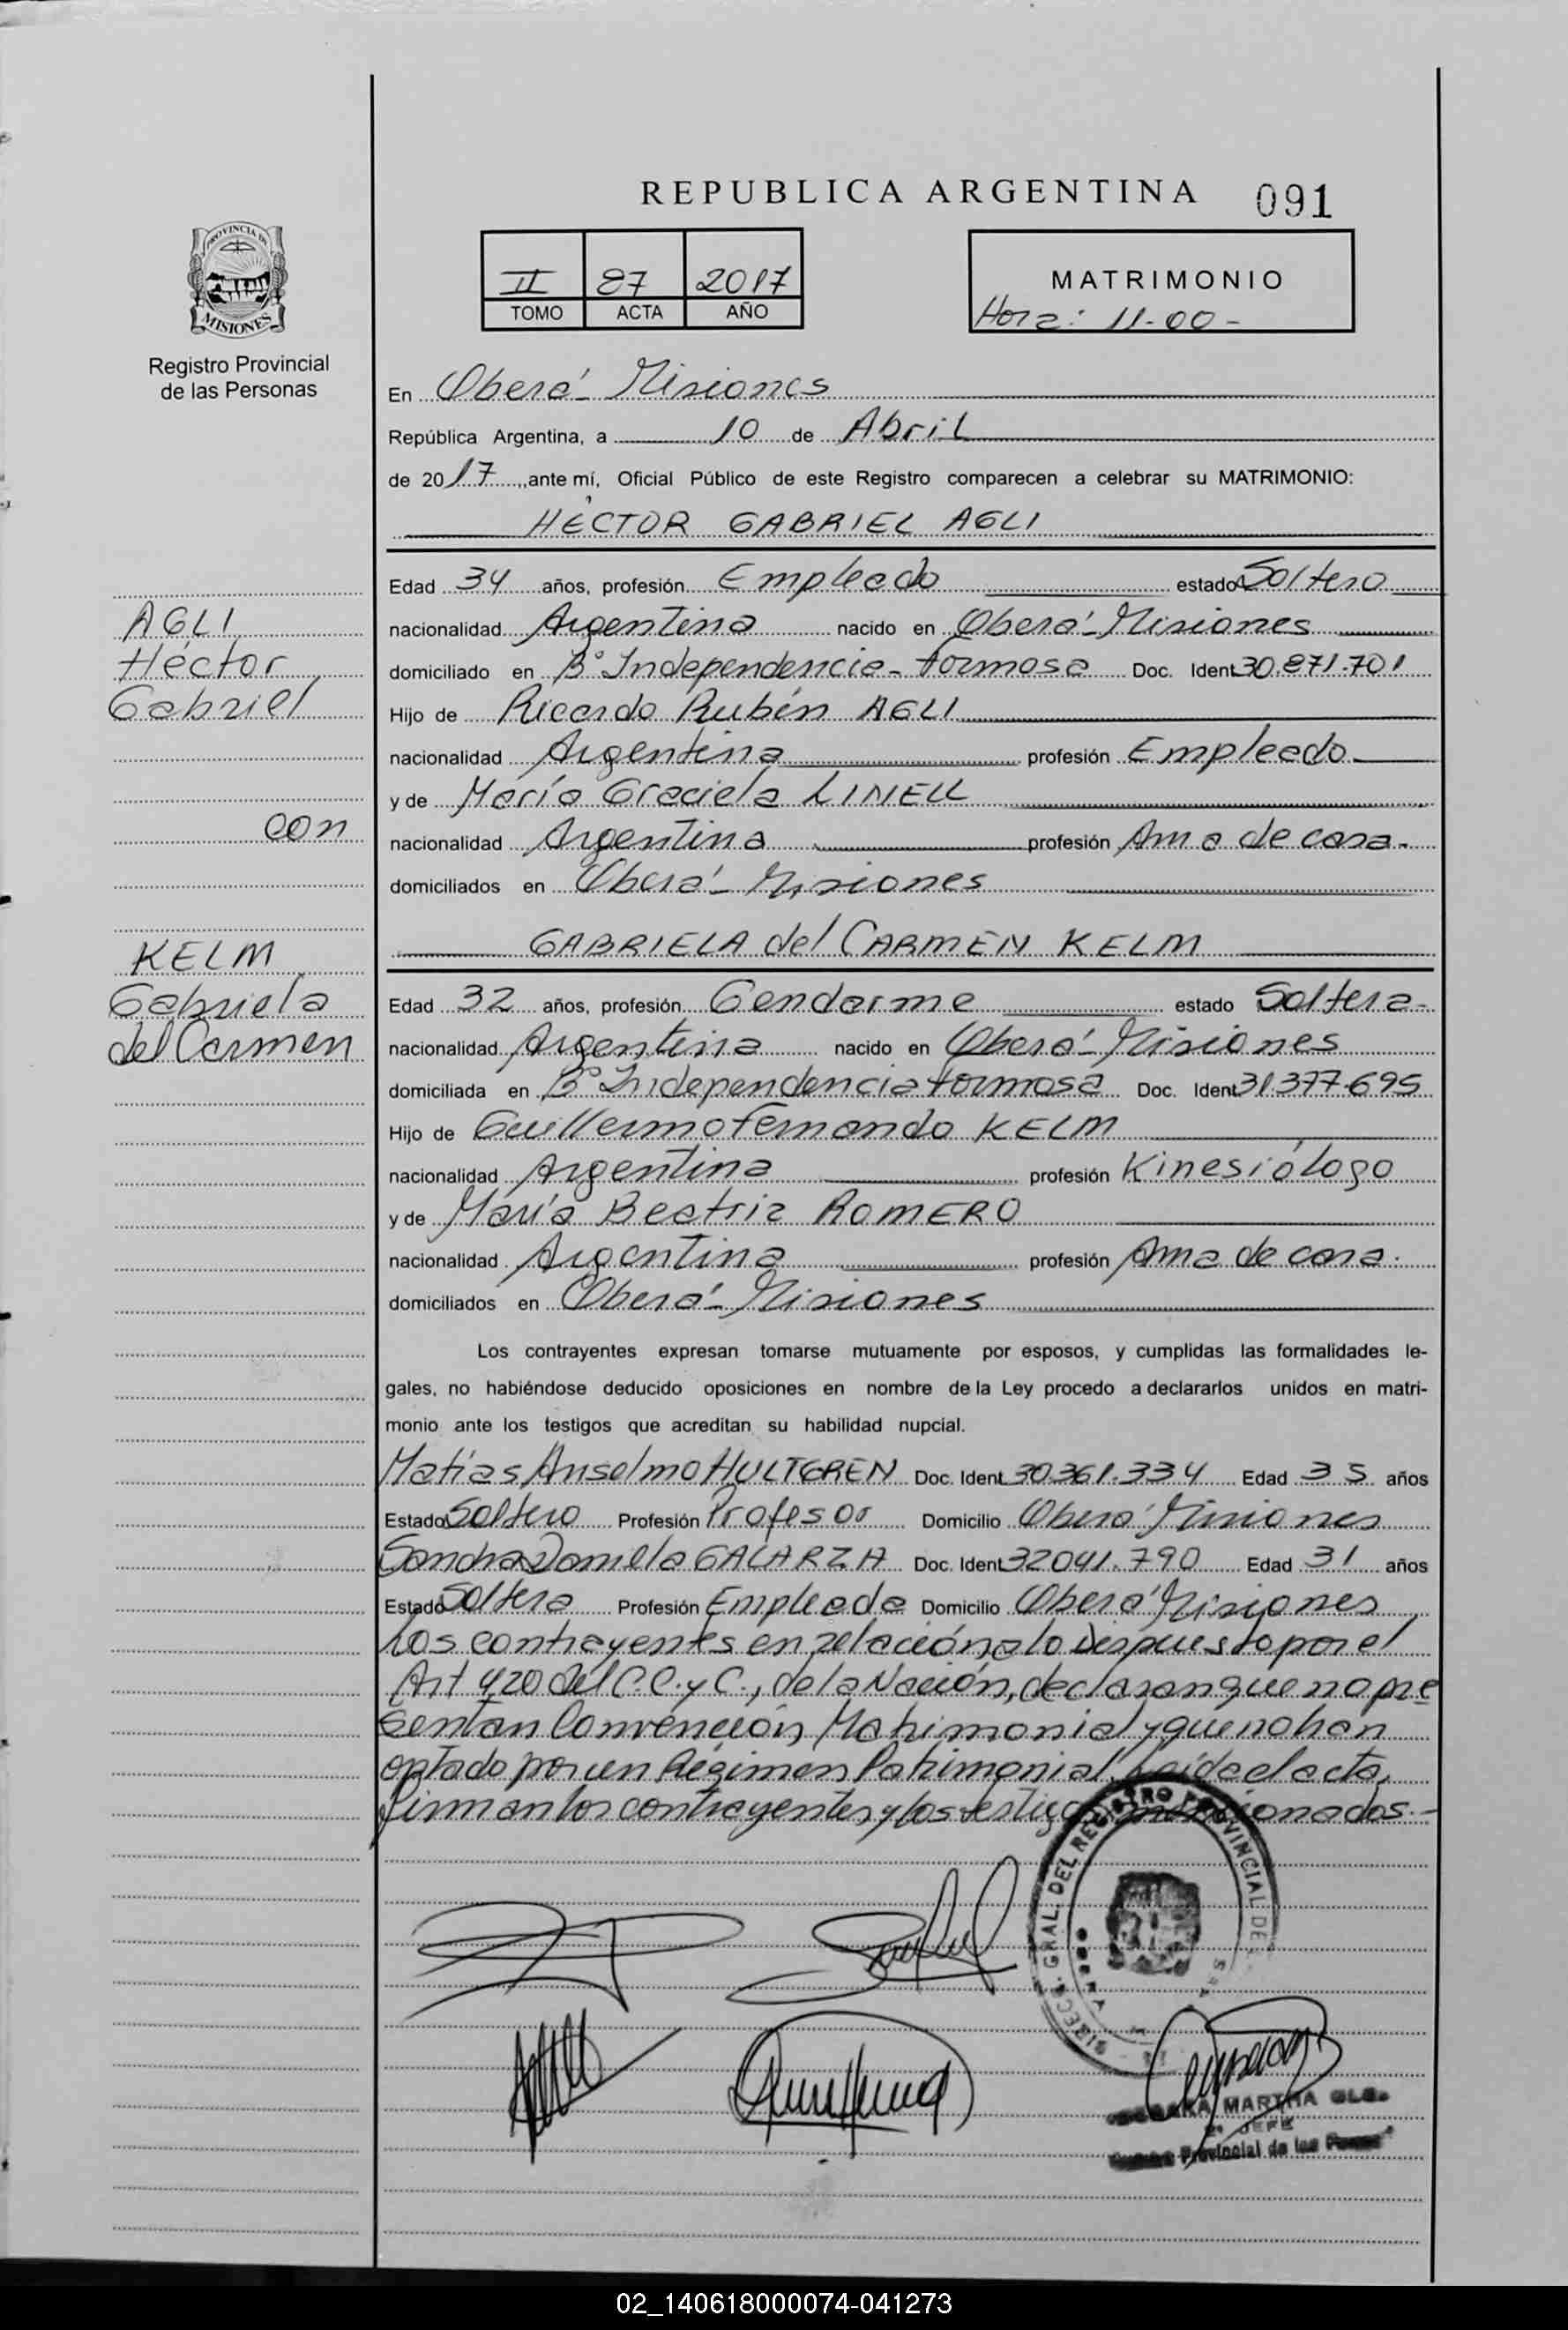 REPUBLICA ARGENTINA 091
PROVINCIA DE
MISIONES
Registro Provincial
de las Personas
II 87 2017
TOMO ACTA AÑO
MATRIMONIO
Hora: 11-00-
En Oberá- Misiones
República Argentina, a 10 de Abril
de 2017, ante mí, Oficial Público de este Registro comparecen a celebrar su MATRIMONIO:
HÉCTOR GABRIEL AGLI
Edad 34 años, profesión Empleado estado Soltero
nacionalidad Argentina nacido en Oberá-Misiones
domiciliado en B° Independencia-Formosa Doc. Ident 30.871.701
Hijo de Ricardo Rubén AGLI
nacionalidad Argentina profesión Empleado
y de María Graciela LINELL
nacionalidad Argentina profesión Ama de casa.
domiciliados en Oberá- Misiones
AGLI
Héctor
Gabriel
con
KELM
Gabriela
del Carmen
GABRIELA del CARMEN KELM
Edad 32 años, profesión Gendarme estado Soltera-
nacionalidad Argentina nacido en Oberá-Misiones
domiciliada en B° Independencia Formosa Doc. Ident 31.377.695
Hijo de Guillermo Fernando KELM
nacionalidad Argentina profesión Kinesiólogo
y de María Beatriz ROMERO
nacionalidad Argentina profesión Ama de casa.
domiciliados en Oberá- Misiones
Los contrayentes expresan tomarse mutuamente por esposos, y cumplidas las formalidades le-
gales, no habiéndose deducido oposiciones en nombre de la Ley procedo a declararlos unidos en matri-
monio ante los testigos que acreditan su habilidad nupcial.
Matías Anselmo HULTGREN Doc. Ident 30.361.334 Edad 35 años
Estado Soltero Profesión Profesor Domicilio Oberá Misiones
Sandra Daniela GALARZA Doc. Ident 32041.790 Edad 31 años
Estado Soltera Profesión Empleada Domicilio Oberá Misiones
Los contrayentes en relación a lo Dispuesto por el
Art 420 del C.C. y C., de la Nación, declaran que no pre
sentan Convención Matrimonial y que no han
optado por un Régimen Patrimonial. Leída el acta,
firman los contrayentes y los testigos mencionados.-
GRAL. DEL REGISTRO PROVINCIAL DE
MARTHA
JEFE
Provincial de las
02_140618000074-041273